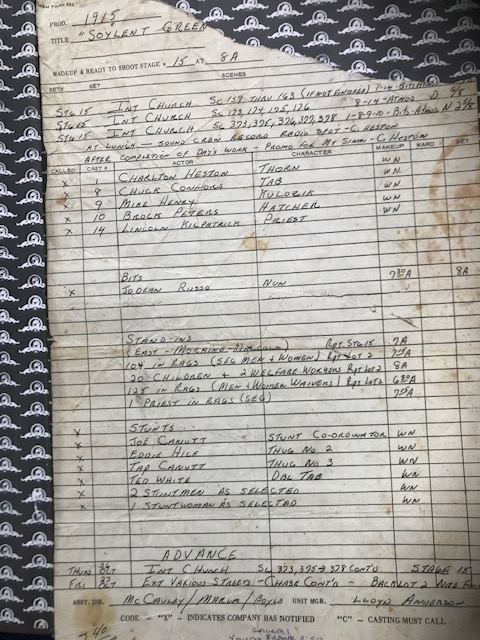 PROD. 1915
TITLE "SOYLENT GREEN
MADEUP & READY TO SHOOT STAGE # 15 AT 8A
SET# SET SCENES
STG 15 INT CHURCH SC 159 THRU 163 (IF NOT FINISHED) 1-14-BITS-ATMOS
STG 15 INT CHURCH SC 123, 124, 125, 126 8-14-ATMOS D 4/8
STG 15 INT CHURCH, SC 323, 325, 326, 327, 328 1-8-9-10-BITS-ATMOS N 2 5/8
AT LUNCH - SOUND CREW RECORD RADIO SPOT - C. HESTON
AFTER COMPLETION OF DAY'S WORK - PROMO FOR C. HESTON
CALLED CAST # ACTOR CHARACTER MAKEUP WARD. SET
X 1 CHARLTON HESTON THORN WN
X 8 CHUCK CONNORS TAB WN
X 9 MIKE HENRY KULOZIK WN
X 10 BROCK PETERS HATCHER WN
X 14 LINCOLN KILPATRICK PRIEST
BITS 7 30 A 8A
X JODEAN RUSSO NUN
STAND-INS
(EAST - MORAINO - MALCOLM) RPT. STG 15 7A
104 IN RAGS (SEG MEN & WOMEN) RPT LOT 2 7 05 A
20 CHILDREN & 2 WELFARE WORKERS RPT LOT 2 8A
125 IN RAGS (MEN & WOMEN WAIVERS) RPT LOT 2 6 30 A
1 PRIEST IN RAGS (SEG) 7 05 A
X STUNTS
X JOE CANUTT STUNT CO-ORDINATOR WN
X EDDIE HICE THUG NO 2 WN
X TAP CANUTT THUG NO 3 WN
X TED WHITE DBL TAB WN
X 2 STUNTMEN AS SELECTED WN
X 1 STUNTWOMAN AS SELECTED WN
ADVANCE
THURS OCT INT CHURCH SC 323, 325 → 328 CONT'D STAGE 15
FRI OCT EXT VARIOUS STREETS - CHASE CONT'D - BACKLOT 2
ASST. DIR. McCAULEY / MARUM / BOYLE UNIT MGR. LLOYD ANDERSON
CODE - "X" - INDICATES COMPANY HAS NOTIFIED "C" - CASTING MUST CALL